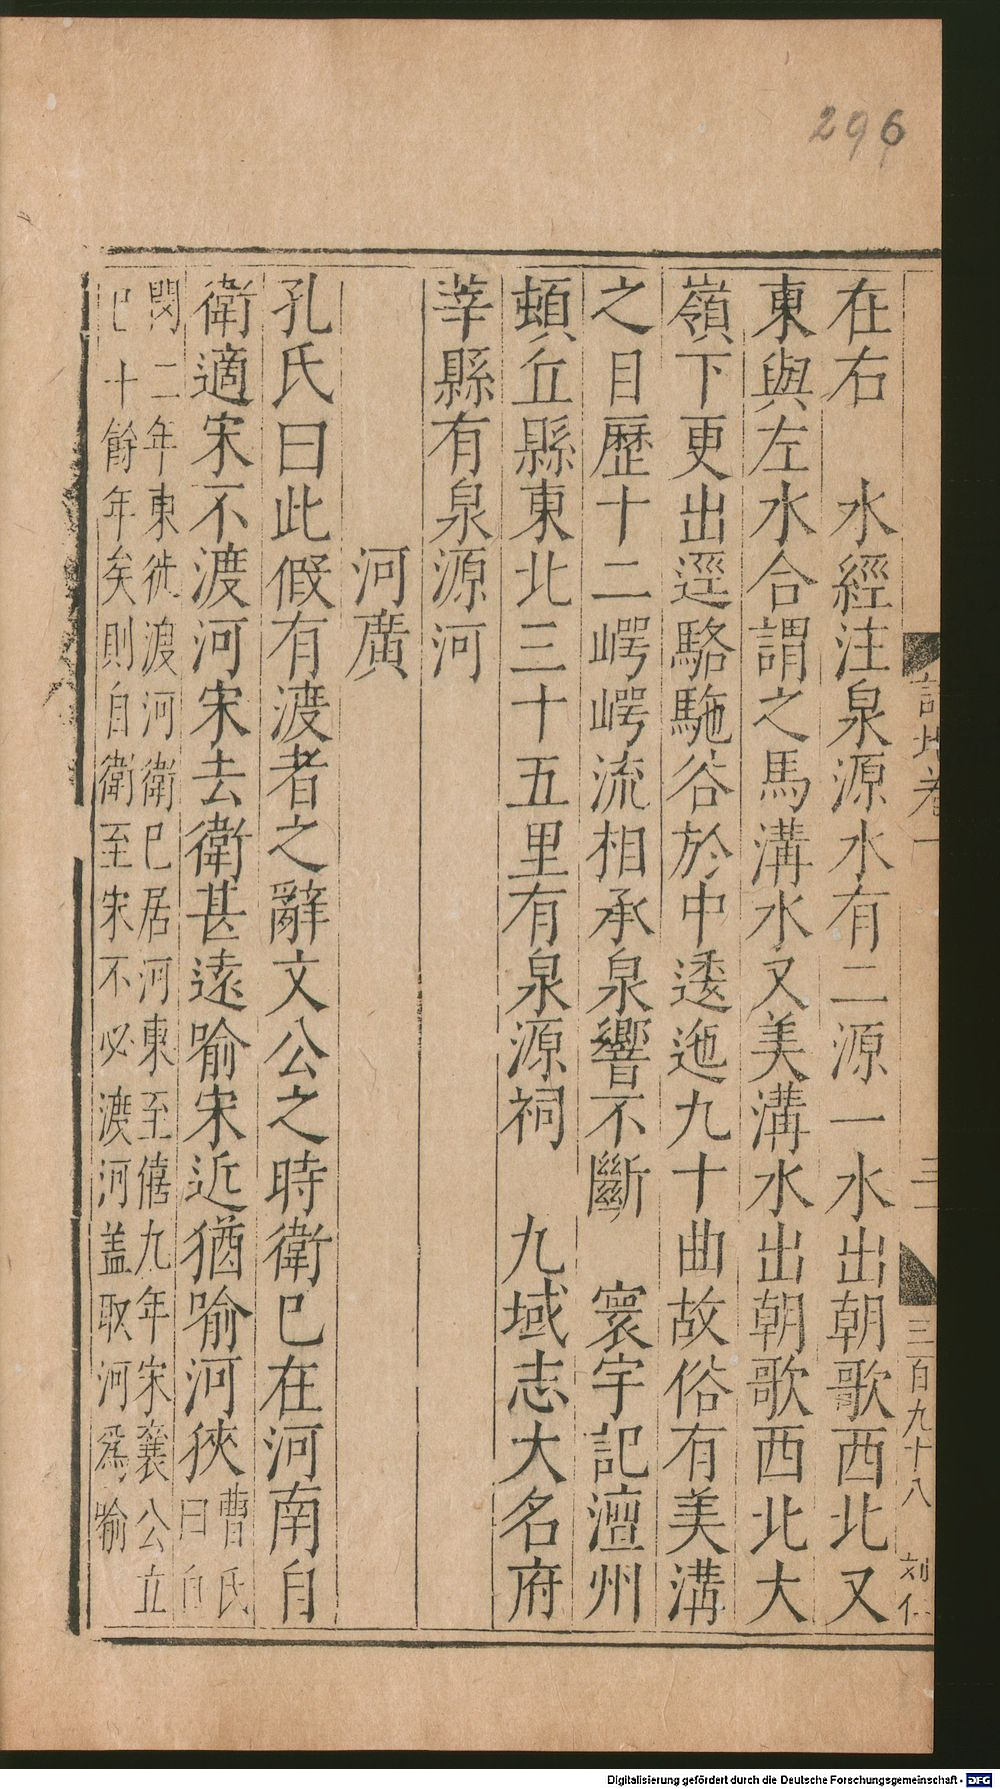 296
在右　水經注泉源水有二源一水出朝歌西北又
東與左水合謂之馬溝水又美溝水出朝歌西北大
嶺下更出逕駱駞谷於中逶迤九十曲故俗有美溝
之目歷十二崿崿流相承泉響不斷　寰宇記澶州
頓丘縣東北三十五里有泉源祠　九域志大名府
莘縣有泉源河
河廣
孔氏曰此假有渡者之辭文公之時衛巳在河南自
衛適宋不渡河宋去衛甚遠喻宋近猶喻河狹曹氏曰自
閔二年東徙渡河衛巳居河東至僖九年宋襄公立
巳十餘年矣則自衛至宋不必渡河盖取河爲喻
詩地卷一
三百九十八
刘仁
Digitalisierung gefördert durch die Deutsche Forschungsgemeinschaft - DFG